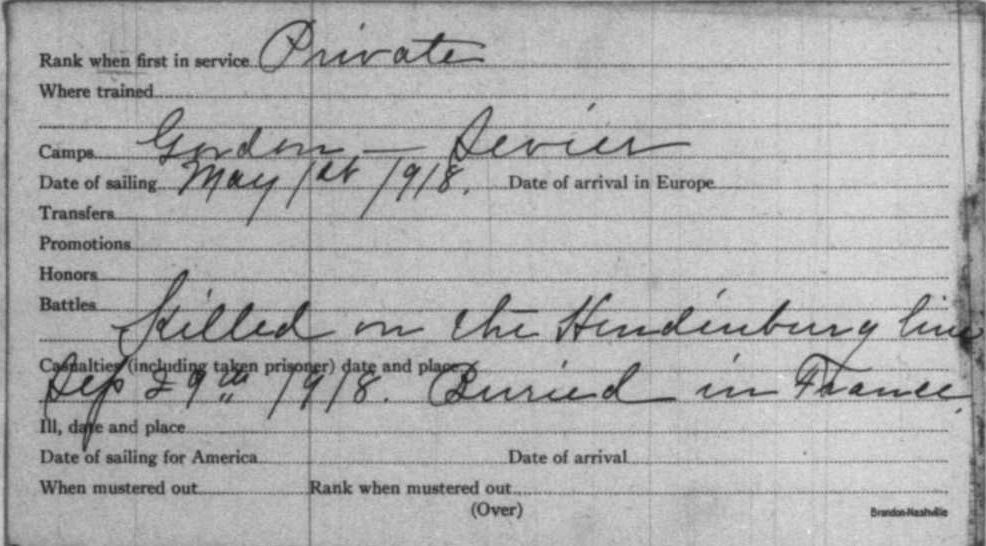 Rank when first in service Private
Where trained
Camps Gordon — Sevier
Date of sailing May 1st 1918. Date of arrival in Europe
Transfers
Promotions
Honors
Battles
Killed on the Hindinburg line
Casualties (including taken prisoner) date and place
Sep 29th 1918. Buried in France.
Ill, date and place
Date of sailing for America Date of arrival
When mustered out Rank when mustered out
(Over)
Brandon-Nashville